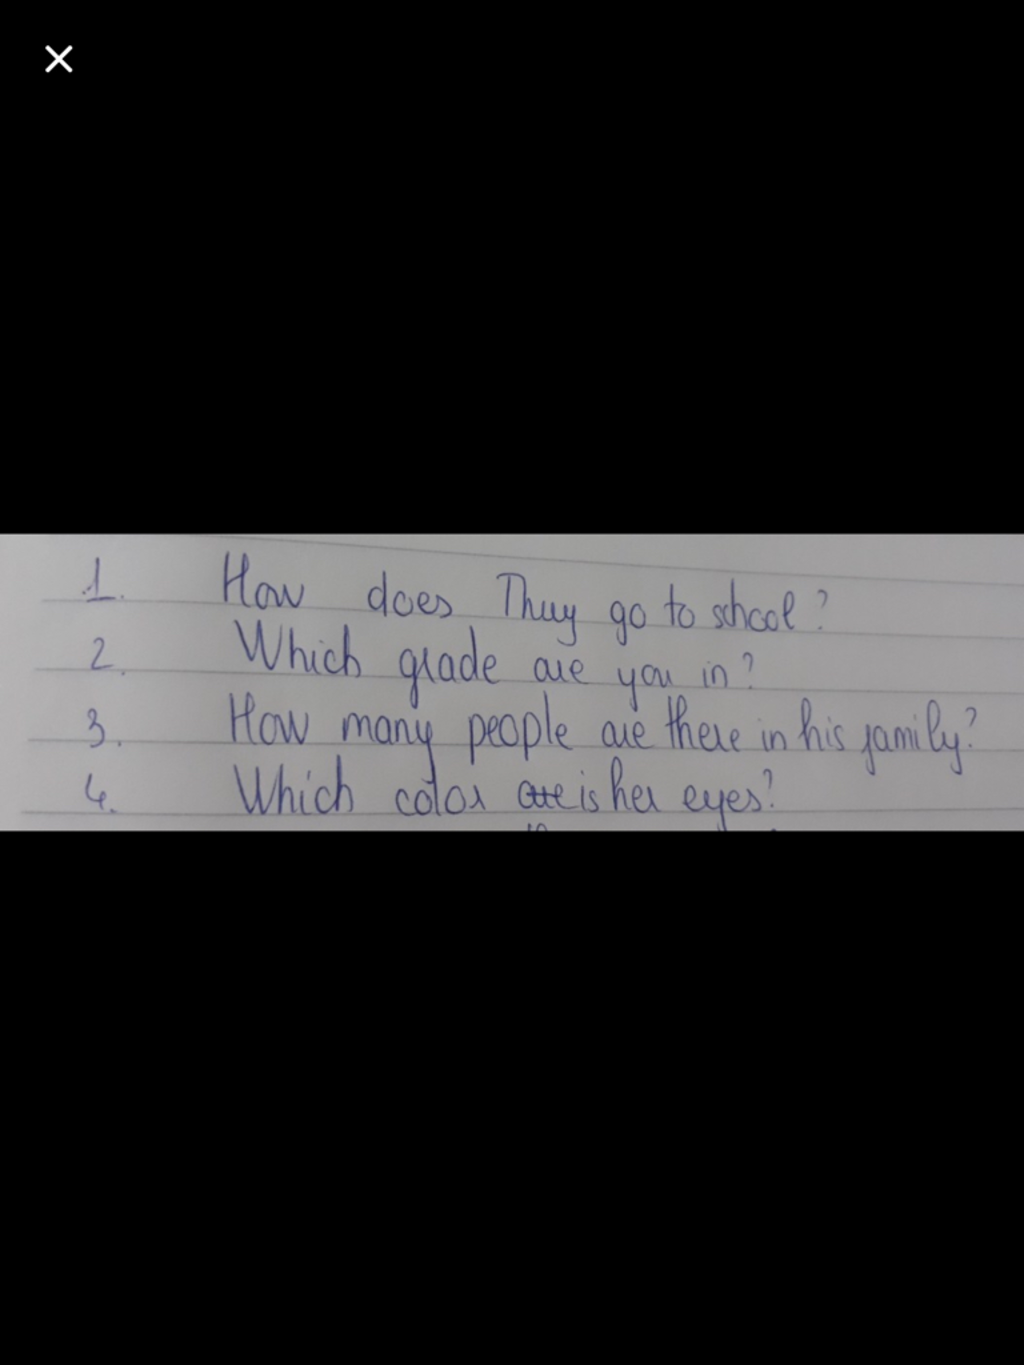 1. How does Thuy go to school?
2. Which grade are you in?
3. How many people are there in his family?
4. Which color is her eyes?